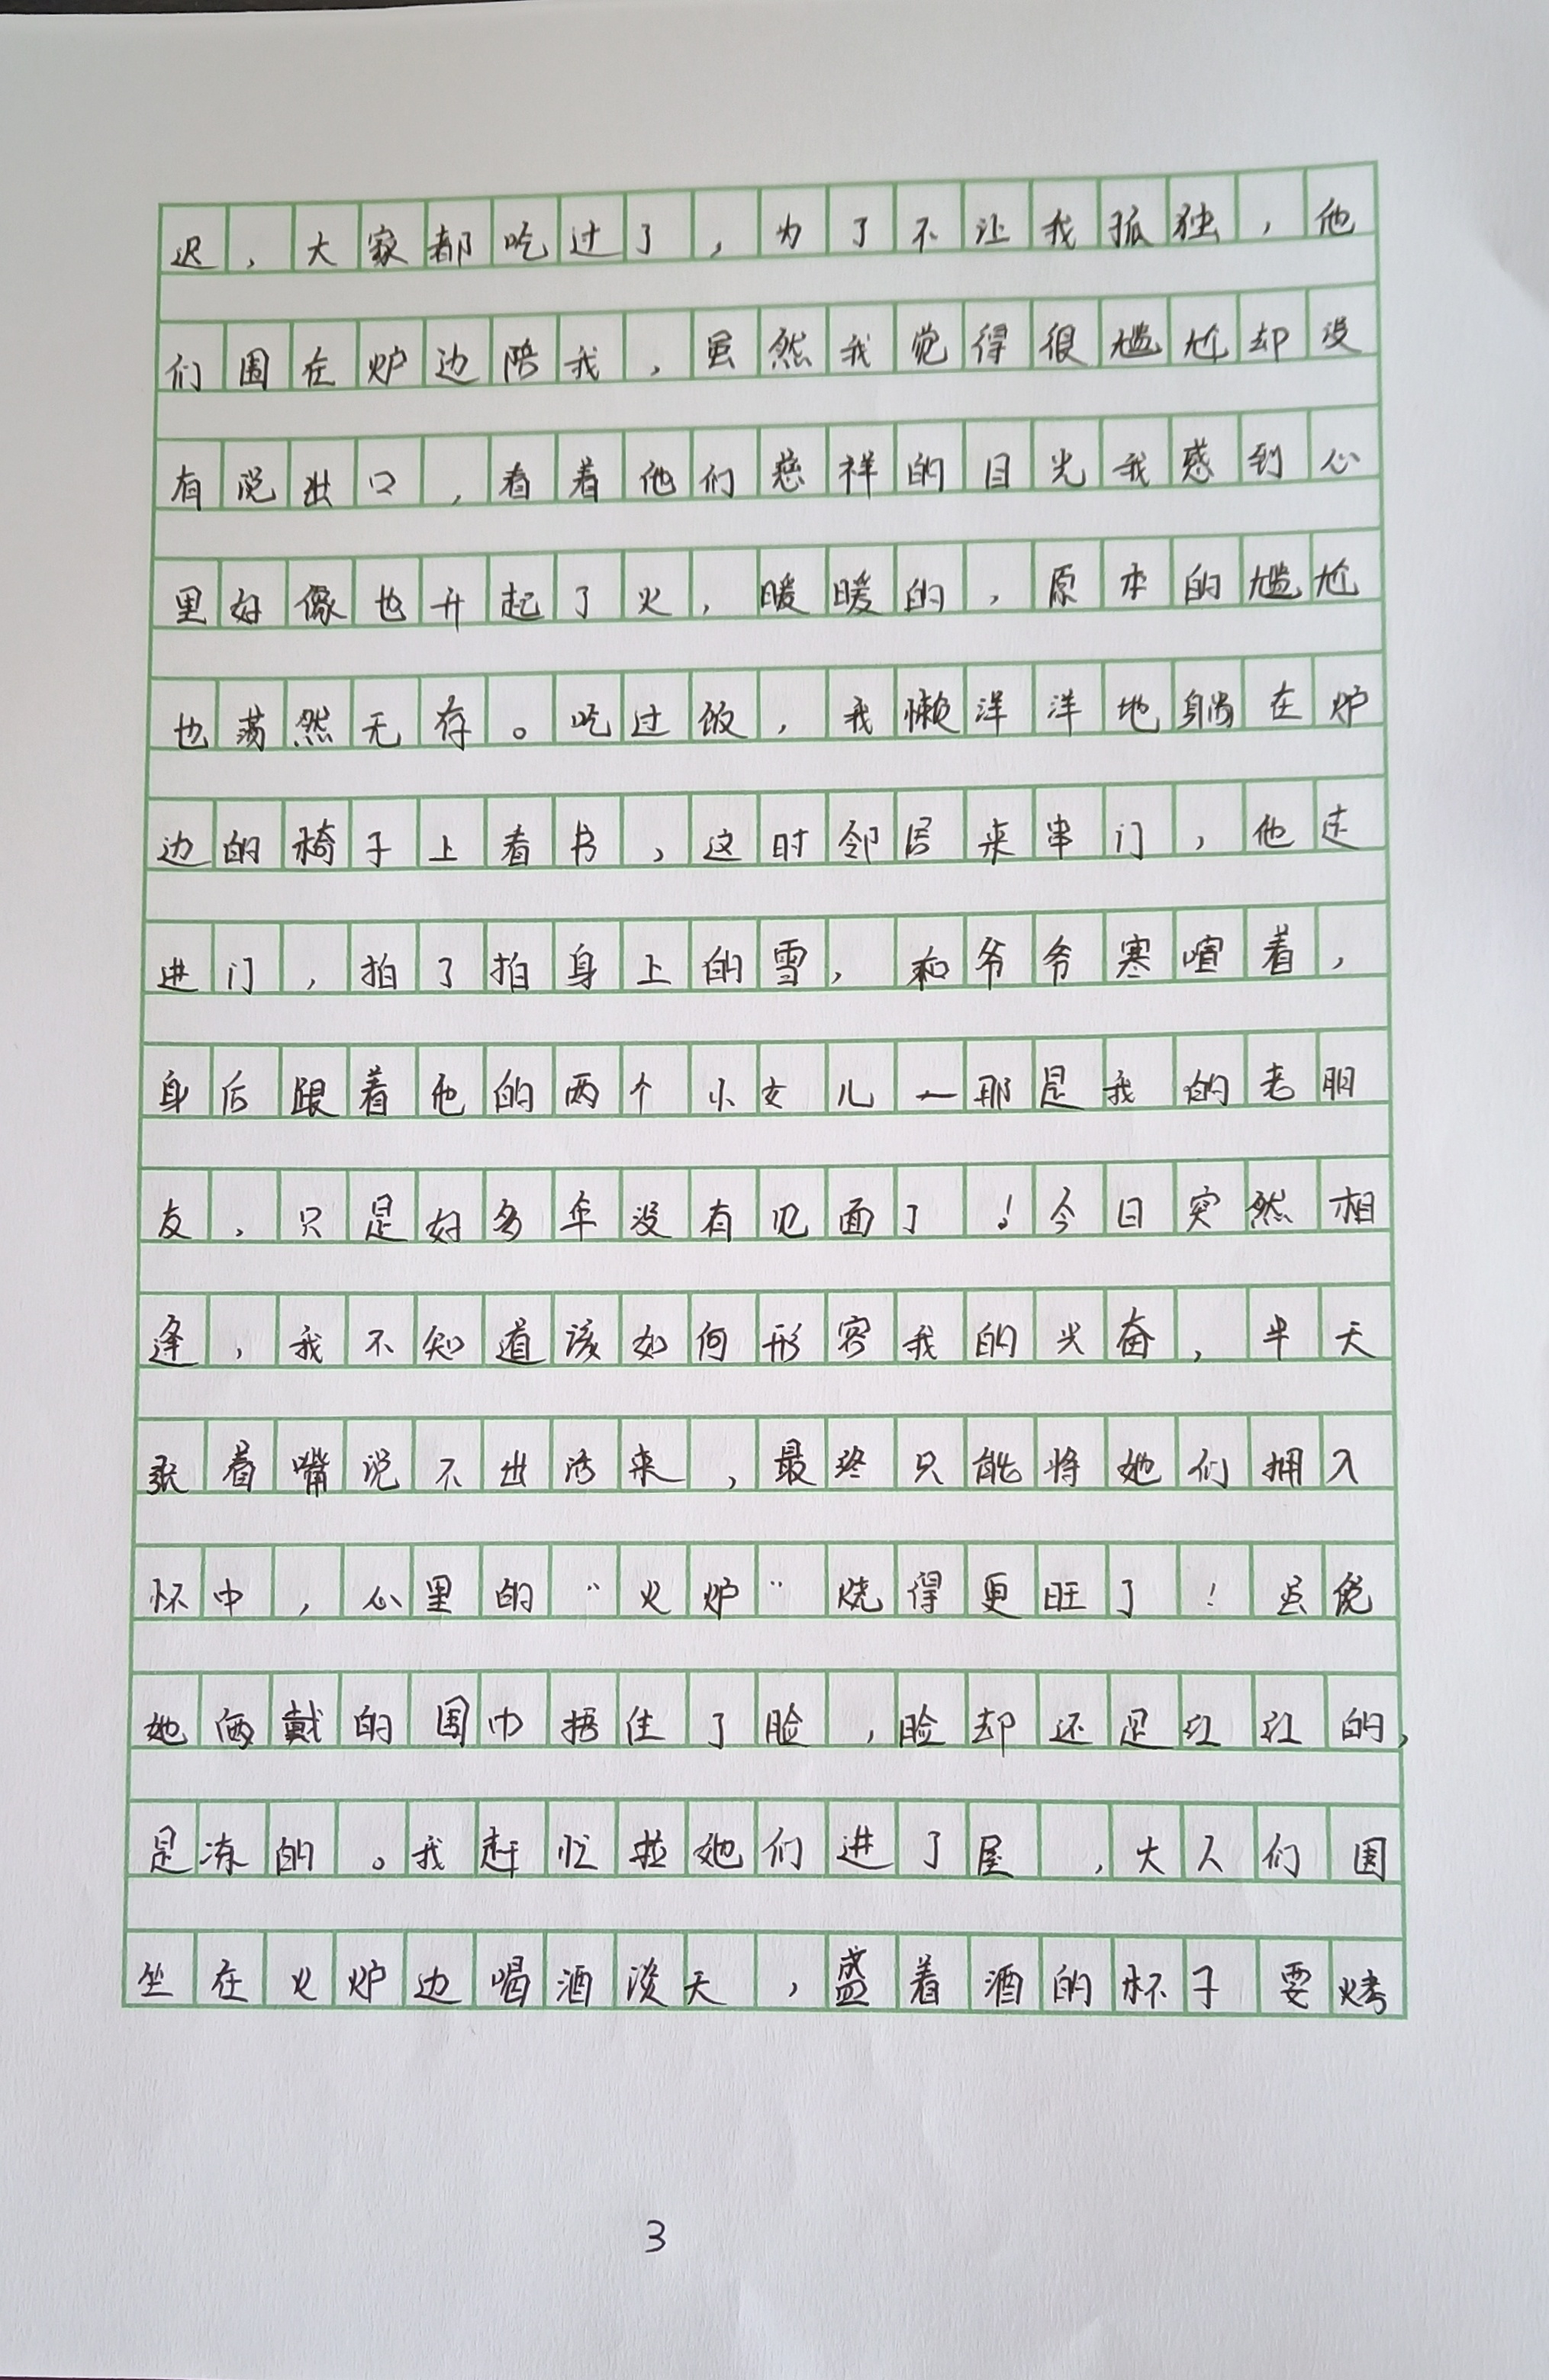 迟，大家都吃过了，为了不让我孤独，他
们围在炉边陪我，虽然我觉得很尴尬却没
有说出口，看着他们慈祥的目光我感到心
里好像也升起了火，暖暖的，原本的尴尬
也荡然无存。吃过饭，我懒洋洋地躺在炉
边的椅子上看书，这时邻居来串门，他走
进门，拍了拍身上的雪，和爷爷寒喧着，
身后跟着他的两个小女儿—那是我的老朋
友，只是好多年没有见面了！今日突然相
逢，我不知道该如何形容我的兴奋，半天
张着嘴说不出话来，最终只能将她们拥入
怀中，心里的“火炉”烧得更旺了！虽说
她俩戴的围巾捂住了脸，脸却还是红红的，
是冻的。我赶忙拉她们进了屋，大人们围
坐在火炉边喝酒谈天，盛着酒的杯子要烤
3